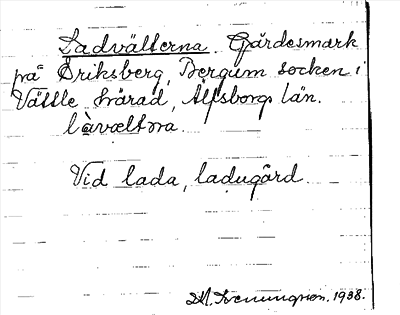 Ladvälterna. Gärdesmark
på Eriksberg, Bergum socken i
Vättle härad, Älfsborgs län.
làvæltɔra.
Vid lada, ladugård.
1938.